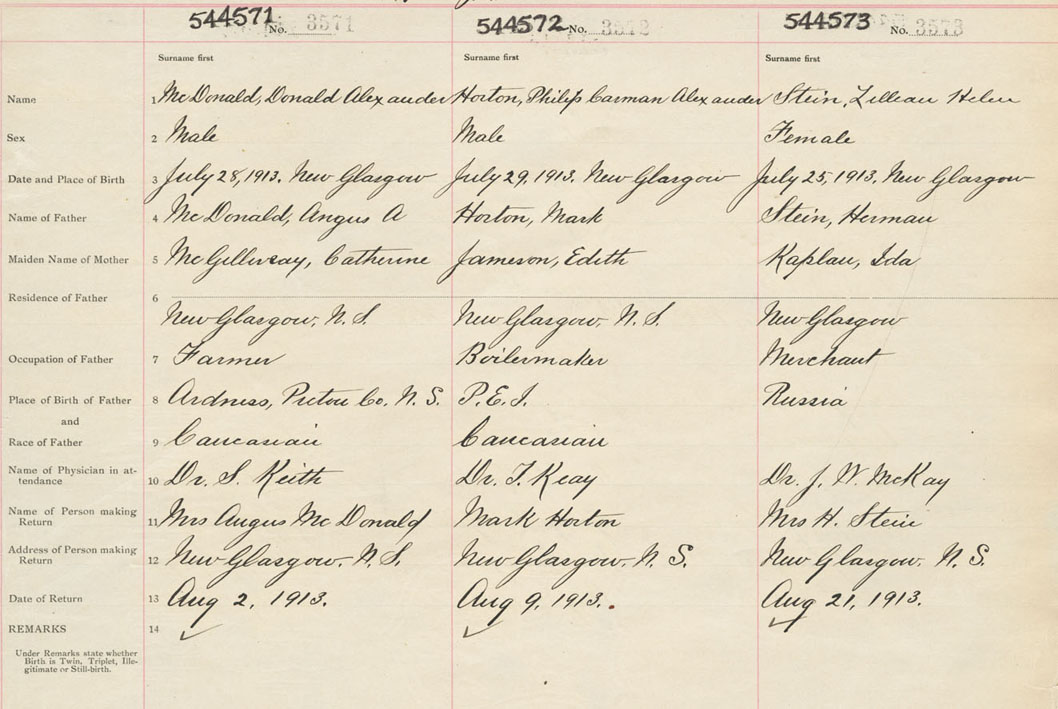 544571 No. 3571 544572 No. 3572 544573 No. 3573
Surname first Surname first Surname first
Name 1 McDonald, Donald Alexander Horton, Philip Carman Alexander Stein, Lillian Helen
Sex 2 Male Male Female
Date and Place of Birth 3 July 28, 1913. New Glasgow July 29, 1913. New Glasgow July 25, 1913. New Glasgow
Name of Father 4 McDonald, Angus A Horton, Mark Stein, Herman
Maiden Name of Mother 5 McGillivray, Catherine Jameson, Edith Kaplan, Ida
Residence of Father 6
New Glasgow, N. S. New Glasgow, N. S. New Glasgow
Occupation of Father 7 Farmer Boilermaker Merchant
Place of Birth of Father 8 Ardness, Pictou Co. N. S. P. E. I. Russia
and
Race of Father 9 Caucasian Caucasian
Name of Physician in at-
tendance 10 Dr. S. Keith Dr. T. Keay Dr. J. W. McKay
Name of Person making
Return 11 Mrs Angus McDonald Mark Horton Mrs H. Stein
Address of Person making
Return 12 New Glasgow. N. S. New Glasgow. N. S. New Glasgow. N. S.
Date of Return 13 Aug 2, 1913. Aug 9, 1913. Aug 21, 1913.
REMARKS 14
Under Remarks state whether
Birth is Twin, Triplet, Ille-
gitimate or Still-birth.